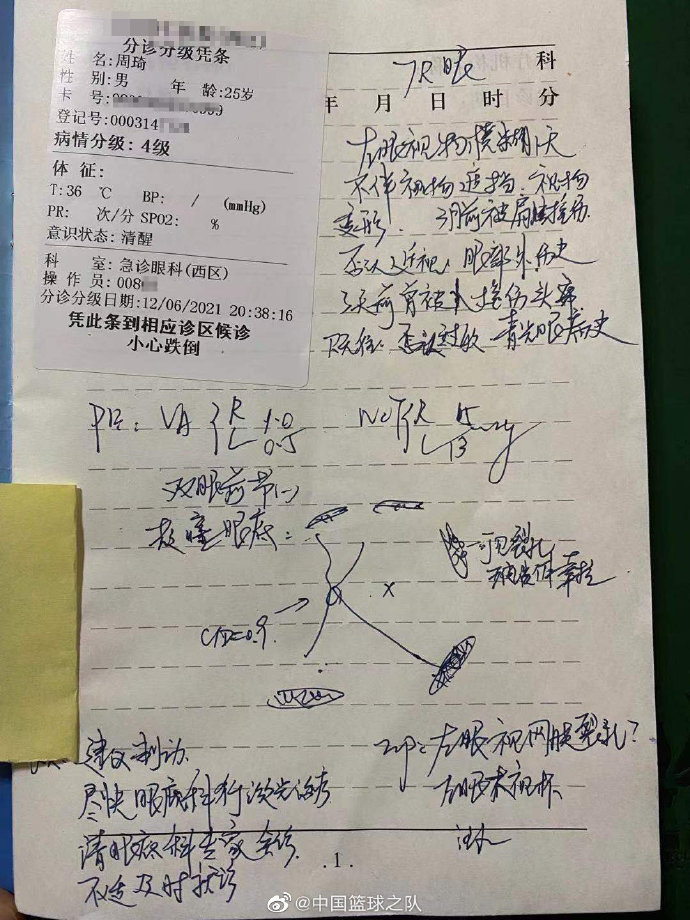 分诊分级凭条
姓 名:周琦
性 别:男 年 龄:25岁
卡 号:
登记号:000314
病情分级: 4级
体 征:
T:36 ℃ BP: / (mmHg)
PR: 次/分 SPO2: %
意识状态: 清醒
科 室: 急诊眼科(西区)
操 作 员: 008
分诊分级日期:12/06/2021 20:38:16
凭此条到相应诊区候诊
小心跌倒
眼 科
年 月 日 时 分
左眼视物模糊1天
不伴视物遮挡.视物
变形. 前被肩膀撞伤.
否认近视,眼部外伤史
前曾被人撞伤头部
既往:否认过敏 青光眼病史
PE: VA R 1.0
L 0.5
NCT R 15 mmHg
L 13
双眼前节(-)
散瞳眼底:
可见裂孔
玻璃体牵拉
C/D=0.9
×
建议制动
尽快眼底科行激光治疗
请眼底科专家会诊
不适及时就诊
Imp:左眼视网膜裂孔?
左眼大视杯
.1.
@中国篮球之队